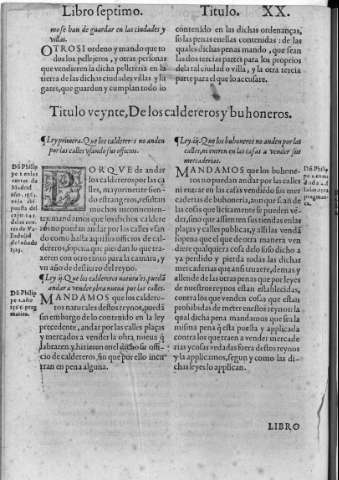 Libro septimo. Titulo. XX.
mo se han de guardar en las ciudades y
villas.
OTROSI ordeno y mando que to
dos los pellejeros, y otras personas
que vendieren la dicha pelleteria en la
tierra de las dichas ciudades villas y lu
gares, que guarden y cumplan todo lo
contenido en las dichas ordenanças,
so las penas en ellas contenidas: de las
quales dichas penas mando, que sean
las dos tercias partes para los proprios
de la tal ciudad o villa, y la otra tercia
parte para el que lo accusare.
Titulo veynte, De los caldereros y buhoneros.
¶Ley primera. Que los caldereros no anden
por las calles vsando sus officios.
Dō Phili
pe
Madrid
PORQVE de andar
los caldereros por las ca
lles, mayormente sien
do estrangeros, resultan
muchos inconuenien-
tes: mandamos que los dichos caldere
ros no puedan andar por las calles vsan
do como hasta aqui sus officios de cal-
dereros, so pena que pierdan lo que tra-
xeren con otro tanto para la camara, y
vn año de destierro del reyno.
¶Ley .ij. Que los caldereros naturales, puedā
andar a vender obra nueua por las calles.
Dō Phili
MANDAMOS que los caldere-
ros naturales destos reynos, puedā
sin embargo de lo contenido en la ley
precedente, andar por las calles plaças
y mercados a vender la obra nueua q̄
labraren, y hizieron en el dicho su offi-
cio de caldereros, sin que por ello incur
ran en pena alguna.
¶Ley .iij. Que los buhoneros no anden por las
calles, ni entren en las casas a vender sus
mercaderias.
Dō Phili
MANDAMOS que los buhone-
ros no puedan andar por las calles
ni entrar en las casas vendiēdo sus mer
caderias de buhoneria, aunque sean de
las cosas que licitamente se pueden vē-
der, sino que assienten sus tiendas en las
plaças y calles publicas, y alli las vendā
so pena que el que de otra manera ven
diere qualquiera cosa de lo suso dicho a
ya perdido y pierda todas las dichas
mercaderias que ansi truxere, demas y
allende de las otras penas que por leyes
de nuestros reynos estan establecidas,
contra los que venden cosas que estan
prohibidas de meter en ellos reynos: la
qual dicha pena mandamos que sea la
misma pena q̄ esta puesta y applicada
contra los que traen a vender mercade
rias y cosas vedadas fuera destos reynos
y la applicamos, segun y como las di-
chas leyes lo applican.
LIBRO